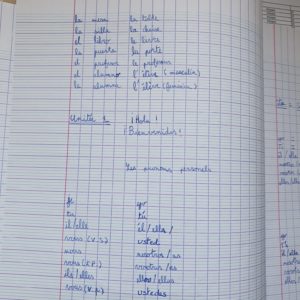 la mesa la table
la silla la chaise
el libro le livre
la puerta la porte
el profesor le professeur
el alumno l'élève (masculin)
la alumna l'élève (féminin)
Unité 1 ¡Hola!
¡Bienvenidos!
Les pronoms personnels
je yo
tu tú
il/elle él/ella/
vous (V.S) usted
nous nosotros/as
vous (V.P.) vosotros/as
ils/elles ellos/ellas
vous (V.P) ustedes